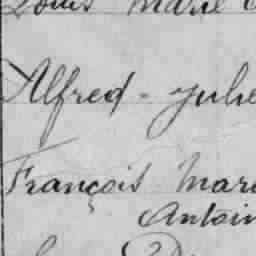 Louis Marie
Alfred - Jule
François Mari
Antoin